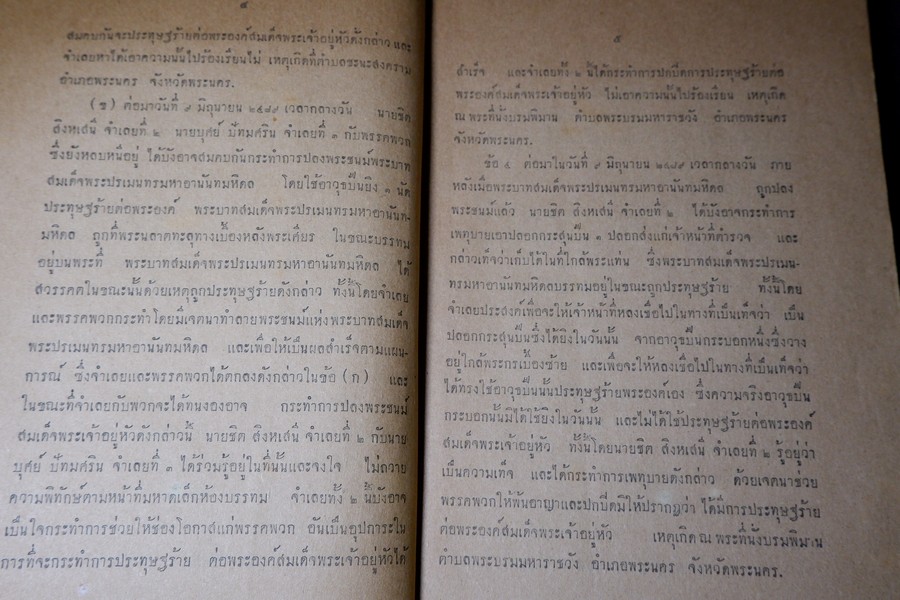 ๔
สมคบกันจะประทุษฐร้ายต่อพระองค์สมเด็จพระเจ้าอยู่หัวดังกล่าว และ
จำเลยหาได้เอาความนั้นไปร้องเรียนไม่ เหตุเกิดที่ตำบลชนะสงคราม
อำเภอพระนคร จังหวัดพระนคร.
(ข) ต่อมาวันที่ ๙ มิถุนายน ๒๔๘๙ เวลากลางวัน นายชิต
สิงหเสนี จำเลยที่ ๒ นายบุศย์ ปัทมศริน จำเลยที่ ๓ กับพรรคพวก
ซึ่งยังหลบหนีอยู่ ได้บังอาจสมคบกันกระทำการปลงพระชนม์พระบาท
สมเด็จพระปรเมนทรมหาอานันทมหิดล โดยใช้อาวุธปืนยิง ๑ นัด
ประทุษฐร้ายต่อพระองค์ พระบาทสมเด็จพระปรเมนทรมหาอานันท-
มหิดล ถูกที่พระนลาตทะลุทางเบื้องหลังพระเศียร ในขณะบรรทม
อยู่บนพระที่ พระบาทสมเด็จพระปรเมนทรมหาอานันทมหิดล ได้
สวรรคตในขณะนั้นด้วยเหตุถูกประทุษฐร้ายดังกล่าว ทั้งนี้โดยจำเลย
และพรรคพวกกระทำโดยมีเจตนาทำลายพระชนม์แห่งพระบาทสมเด็จ
พระปรเมนทรมหาอานันทมหิดล และเพื่อให้เป็นผลสำเร็จตามแผน-
การณ์ ซึ่งจำเลยและพรรคพวกได้ตกลงดังกล่าวในข้อ (ก) และ
ในขณะที่จำเลยกับพวกจะได้ทนงองอาจ กระทำการปลงพระชนม์
สมเด็จพระเจ้าอยู่หัวดังกล่าวนี้ นายชิต สิงหเสนี จำเลยที่ ๒ กับนาย
บุศย์ ปัทมศริน จำเลยที่ ๓ ได้ร่วมรู้อยู่ในที่นั้นและจงใจ ไม่ถวาย
ความพิทักษ์ตามหน้าที่มหาดเล็กห้องบรรทม จำเลยทั้ง ๒ นี้บังอาจ
เป็นใจกระทำการช่วยให้ช่องโอกาสแก่พรรคพวก อันเป็นอุปการะใน
การที่จะกระทำการประทุษฐร้าย ต่อพระองค์สมเด็จพระเจ้าอยู่หัวได้
๕
สำเร็จ และจำเลยทั้ง ๒ นี้ได้กระทำการปกปิดการประทุษฐร้ายต่อ
พระองค์สมเด็จพระเจ้าอยู่หัว ไม่เอาความนั้นไปร้องเรียน เหตุเกิด
ณ พระที่นั่งบรมพิมาน ตำบลพระบรมมหาราชวัง อำเภอพระนคร
จังหวัดพระนคร.
ข้อ ๔ ต่อมาในวันที่ ๙ มิถุนายน ๒๔๘๙ เวลากลางวัน ภาย
หลังเมื่อพระบาทสมเด็จพระปรเมนทรมหาอานันทมหิดล ถูกปลง
พระชนม์แล้ว นายชิต สิงหเสนี จำเลยที่ ๒ ได้บังอาจกระทำการ
เพทุบายเอาปลอกกระสุนปืน ๑ ปลอกส่งแก่เจ้าหน้าที่ตำรวจ และ
กล่าวเท็จว่าเก็บได้ในที่ใกล้พระแท่น ซึ่งพระบาทสมเด็จพระปรเมน-
ทรมหาอานันทมหิดลบรรทมอยู่ในขณะถูกประทุษฐร้าย ทั้งนี้โดย
จำเลยประสงค์เพื่อจะให้เจ้าหน้าที่หลงเชื่อไปในทางที่เป็นเท็จว่า เป็น
ปลอกกระสุนปืนซึ่งได้ยิงในวันนั้น จากอาวุธปืนกระบอกหนึ่งซึ่งวาง
อยู่ใกล้พระกรเบื้องซ้าย และเพื่อจะให้หลงเชื่อไปในทางที่เป็นเท็จว่า
ได้ทรงใช้อาวุธปืนนั้นประทุษฐร้ายพระองค์เอง ซึ่งความจริงอาวุธปืน
กระบอกนั้นมิได้ใช้ยิงในวันนั้น และไม่ได้ใช้ประทุษฐร้ายต่อพระองค์
สมเด็จพระเจ้าอยู่หัว ทั้งนี้โดยนายชิต สิงหเสนี จำเลยที่ ๒ รู้อยู่ว่า
เป็นความเท็จ และได้กระทำการเพทุบายดังกล่าว ด้วยเจตนาช่วย
พรรคพวกให้พ้นอาญาและปกปิดมิให้ปรากฏว่า ได้มีการประทุษฐร้าย
ต่อพระองค์สมเด็จพระเจ้าอยู่หัว เหตุเกิด ณ พระที่นั่งบรมพิมาน
ตำบลพระบรมมหาราชวัง อำเภอพระนคร จังหวัดพระนคร.